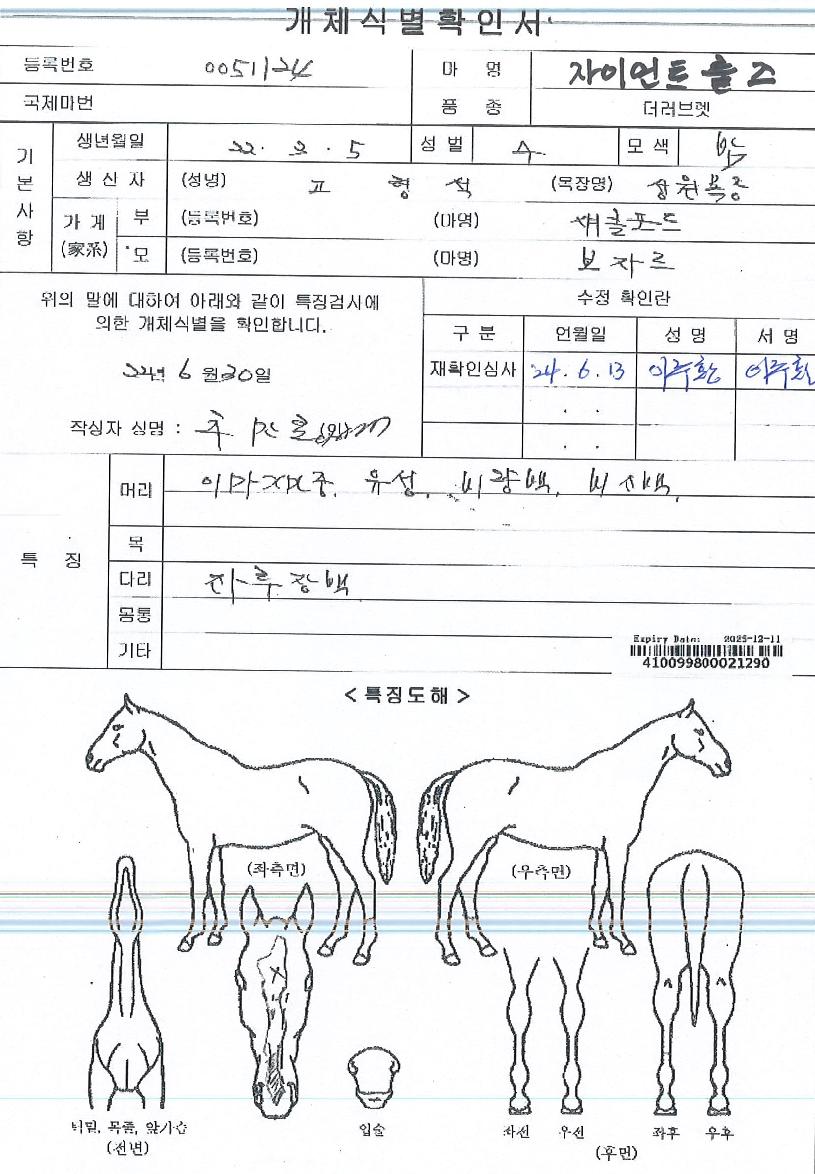 개체식별확인서
등록번호 0051124 마 명 자이언트홀스
국제마번 품 종 더러브렛
기본사항
생년월일 22. 3. 5 성별 수 모색
생산자 (성명) 고 형 석 (목장명)
가계(家系) 부 (등록번호) (마명) 섀클포드
모 (등록번호) (마명) 보자르
위의 말에 대하여 아래와 같이 특징검사에
의한 개체식별을 확인합니다.
24년 6월 30일
작성자 성명 :
수정 확인란
구분 언월일 성명 서명
재확인심사 24. 6. 13
. .
. .
특 징
머리 유성, 비량백,
목
다리 장백
몸통
기타
Expiry Date: 2025-12-11
410099800021290
<특징도해>
(좌측면) (우측면)
턱밑, 목줄, 앞가슴
(전면)
입술
좌전 우전 좌후 우후
(후면)